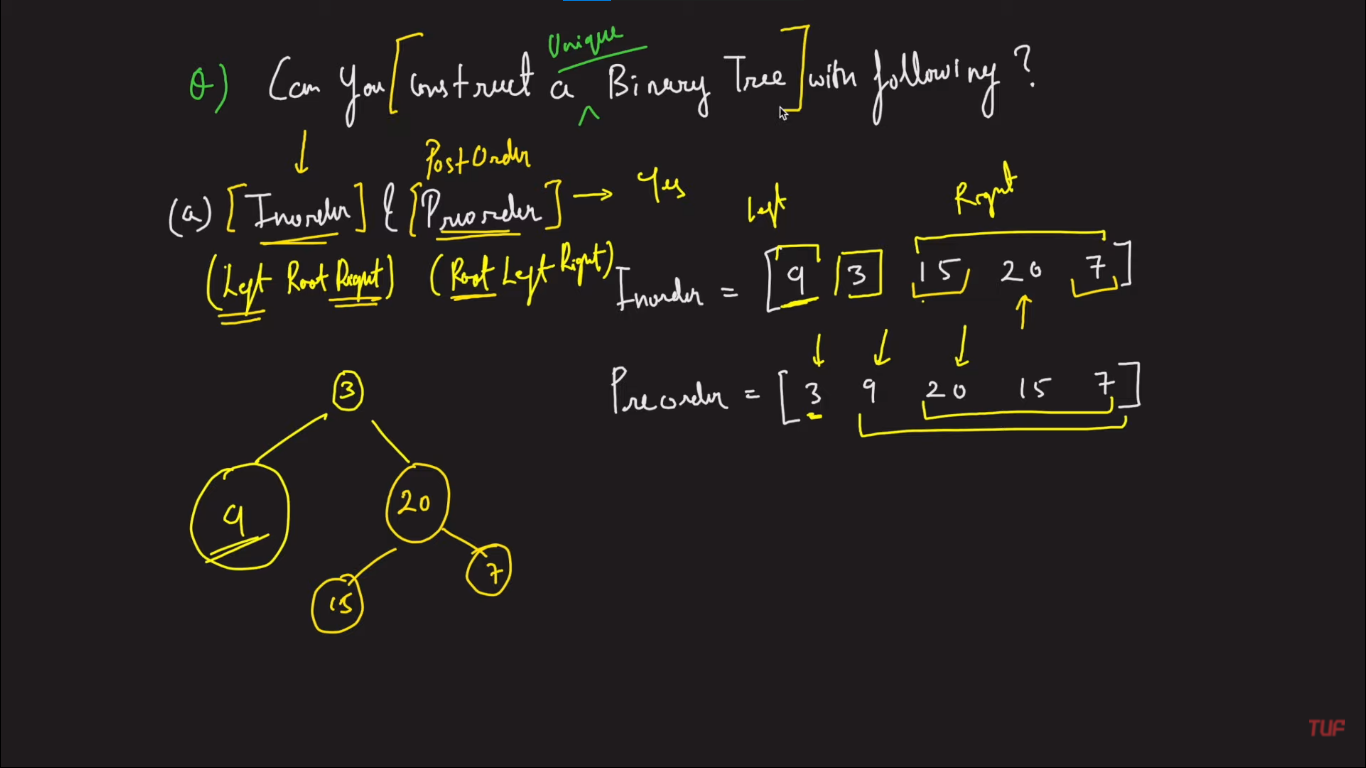 Unique
Q) Can You [construct a ^ Binary Tree] with following?
PostOrder
(a) [Inorder] & [Preorder] → Yes
(Left Root Right) (Root Left Right)
Left Right
Inorder = [9 3 15 20 7]
Preorder = [3 9 20 15 7]
3
9 20
15 7
TUF